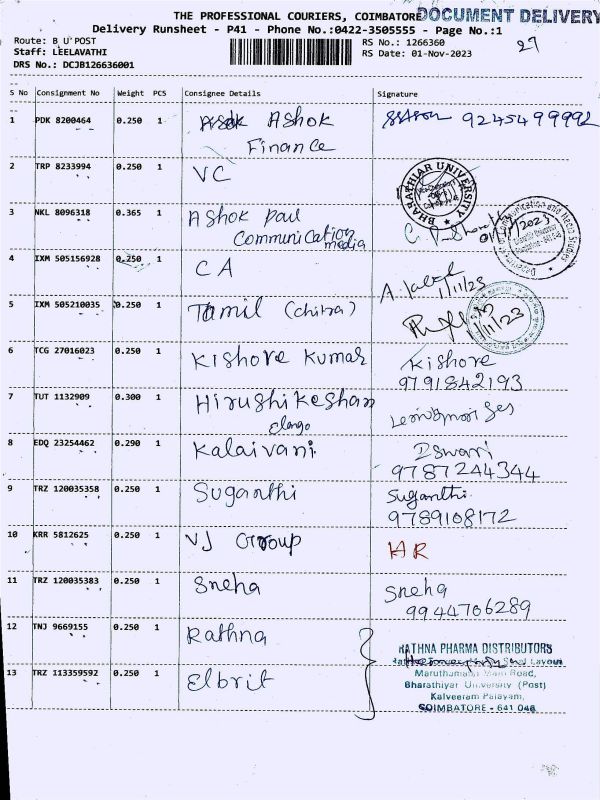 THE PROFESSIONAL COURIERS, COIMBATORE DOCUMENT DELIVERY
Delivery Runsheet - P41 - Phone No.:0422-3505555 - Page No.:1
Route: B U POST
Staff: LEELAVATHI
DRS No.: DCJB126636001
RS No.: 1266360
RS Date: 01-Nov-2023
27
S No Consignment No Weight PCS Consignee Details Signature
1 PDK 8200464 0.250 1 Ashok 9245499992
Finance
2 TRP 8233994 0.250 1 VC
BHARATHIAR UNIVERSITY
3 NKL 8096318 0.365 1 Ashok Paul
Communication
media
4 IXM 505156928 0.250 1 CA
1/11/23
5 IXM 505210035 0.250 1 Tamil (chitra)
1/11/23
6 TCG 27016023 0.250 1 Kishore Kumar Kishore
9791842193
7 TUT 1132909 0.300 1 Hirushikeshan
elango
8 EDQ 23254462 0.290 1 Kalaivani Eswari
9787244344
9 TRZ 120035358 0.250 1 Suganthi Suganthi
9789108172
10 KRR 5812625 0.250 1 VJ Group HR
11 TRZ 120035383 0.250 1 Sneha Sneha
9944706289
12 TNJ 9669155 0.250 1 Rathna
RATHNA PHARMA DISTRIBUTORS
13 TRZ 113359592 0.250 1 Elbrit
Maruthamalai Main Road,
Bharathiyar University (Post)
Kalveeram Palayam,
COIMBATORE - 641 046